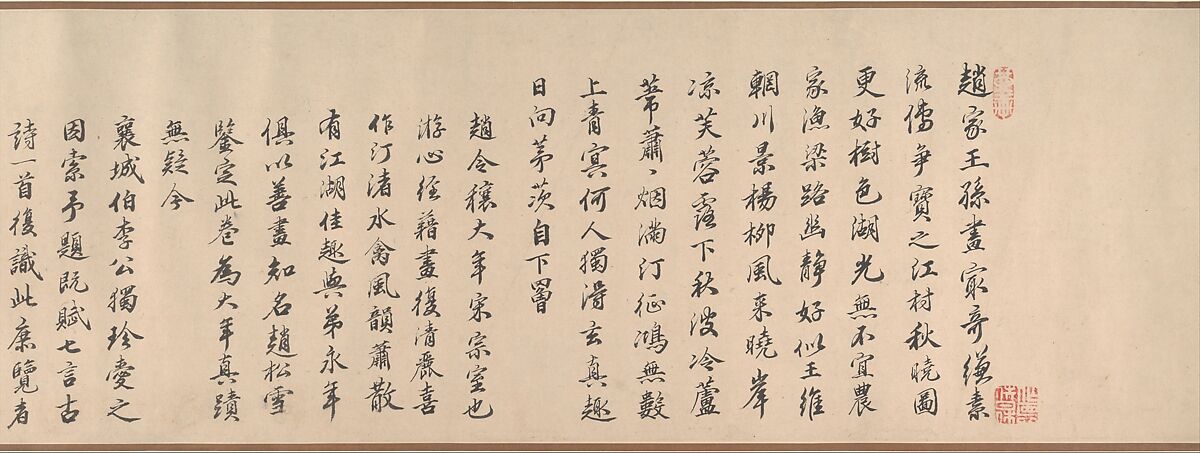 趙家王孫畫寂奇縑素
流傳爭寶之江村秋曉圖
更好樹色湖光無不宜農
家漁梁路幽靜好似王維
輞川景楊柳風來曉岸
凉芙蓉露下秋波冷蘆
葦蕭〻烟滿汀征鴻無數
上青冥何人獨得玄真趣
日向茅茨自下罾
趙令穰大年宋宗室也
游心經藉畫復清麗喜
作汀渚水禽風韻蕭散
有江湖佳趣與弟永年
俱以善畫知名趙松雪
鑒定此卷為大年真蹟
無疑今
襄城伯李公獨珍愛之
因索予題既賦七言古
詩一首復識此庶覽者